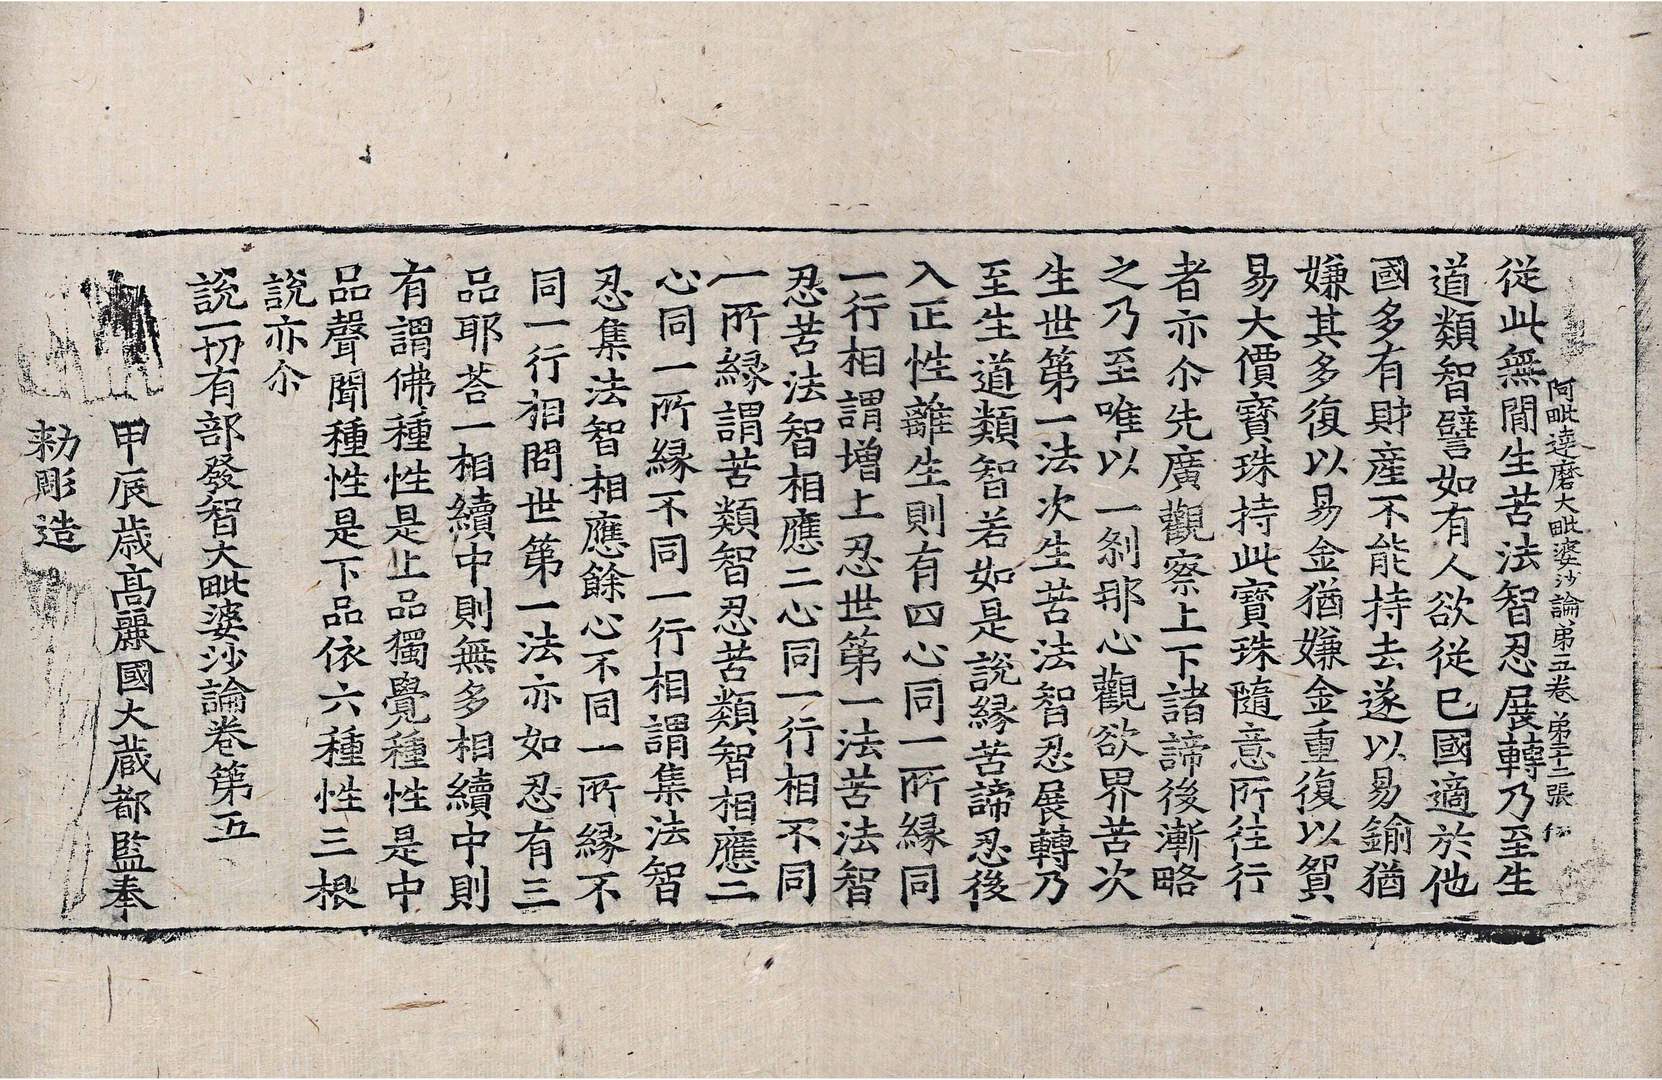 阿毗達磨大毗婆沙論第五卷 第二十二張 仁
從此無閒生苦法智忍展轉乃至生
道類智譬如有人欲從己國適於他
國多有財產不能持去遂以易鍮猶
嫌其多復以易金猶嫌金重復以貿
易大價寶珠持此寶珠隨意所往行
者亦尒先廣觀察上下諸諦後漸略
之乃至唯以一刹那心觀欲界苦次
生世第一法次生苦法智忍展轉乃
至生道類智若如是說緣苦諦忍後
入正性離生則有四心同一所緣同
一行相謂增上忍世第一法苦法智
忍苦法智相應二心同一行相不同
一所緣謂苦類智忍苦類智相應二
心同一所緣不同一行相謂集法智
忍集法智相應餘心不同一所緣不
同一行相問世第一法亦如忍有三
品耶荅一相續中則無多相續中則
有謂佛種性是上品獨覺種性是中
品聲聞種性是下品依六種性三根
說亦尒
說一切有部發智大毗婆沙論卷第五
甲辰歲高麗國大藏都監奉
勑彫造